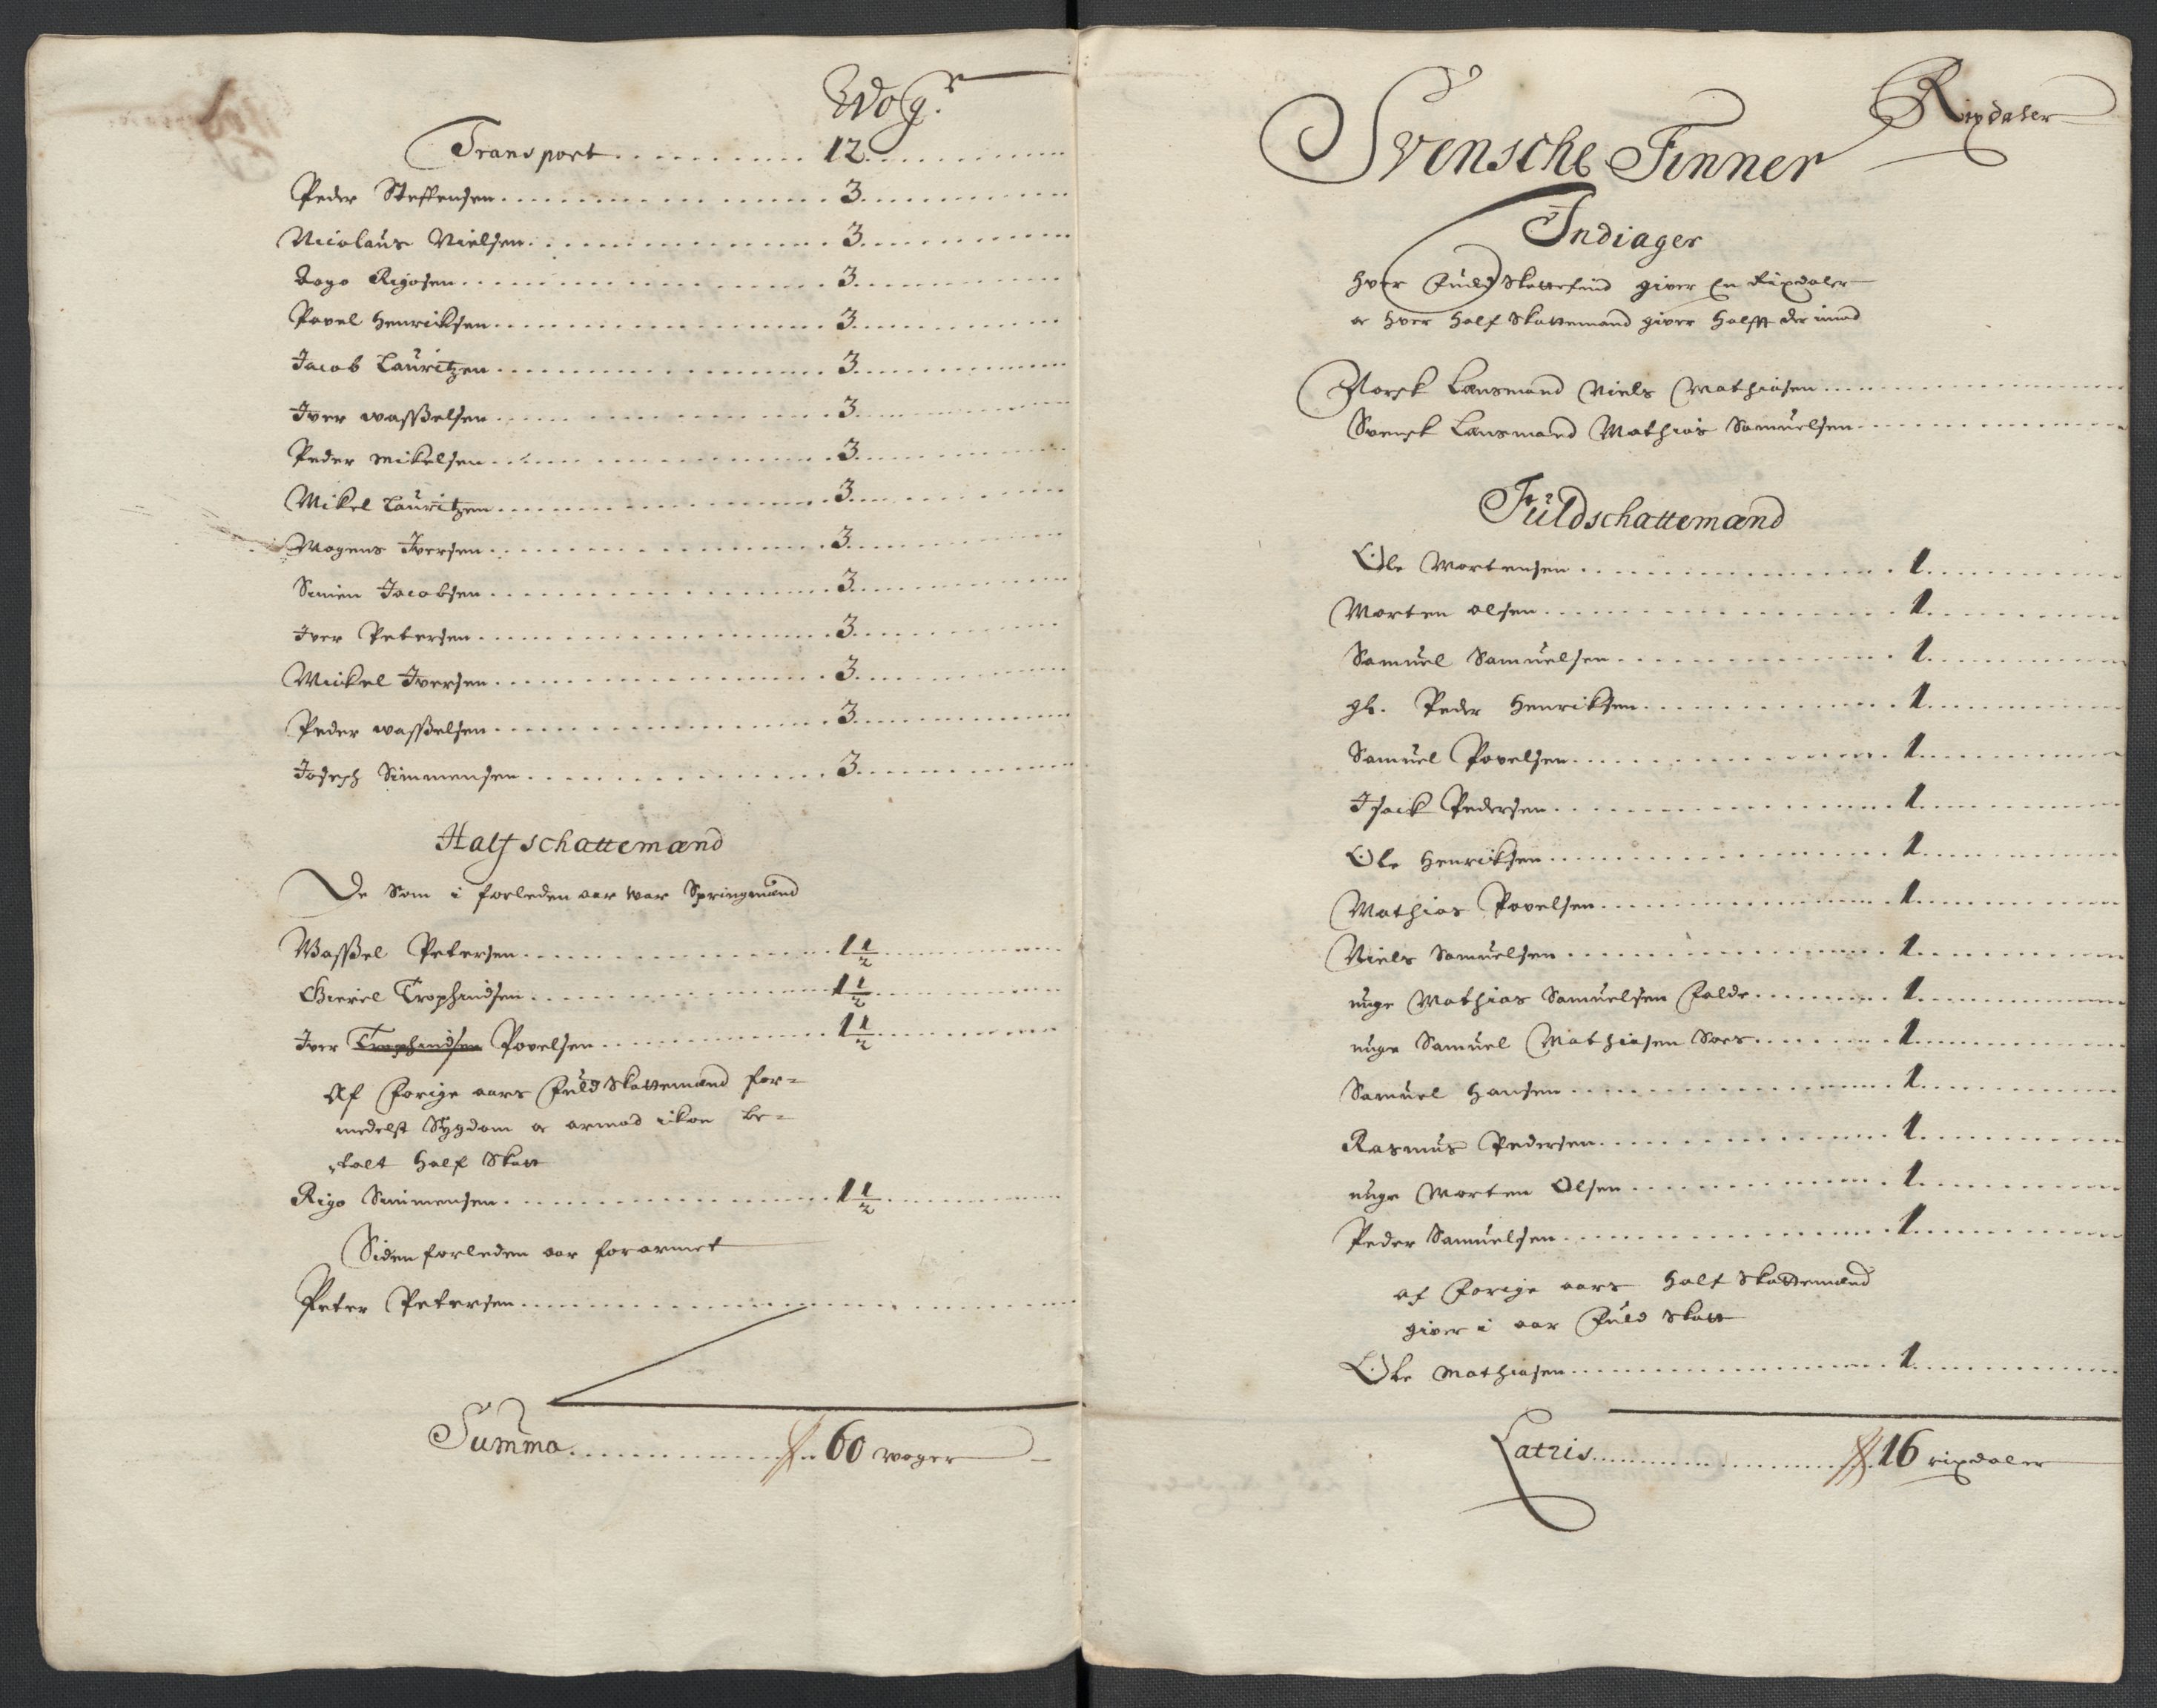 Wog.r
Transport 12
Peder Steffensen 3
Nicolaus Nielsen 3
Zogo Rigosen 3
Povel Henriksen 3
Jacob Lauritzen 3
Jver wasßelsen 3
Peder mikelsen 3
Mikel Lauritzen 3
Mogens Jversen 3
Simen Jacobsen 3
Jver Petersen 3
Mickel Jversen 3
Peder wasßelsen 3
Joseph Simmensen 3
Half schattemænd
De Som i forleden aar war Springmænd
Wasßel Petersen 1 1/2
Gieriel Trophindsen 1 1/2
Jver Trophindsen Povelsen 1 1/2
Af forige aars fuld Skattemænd for=
medelst Sygdom oc armod icke be=
talt Half Skatt
Rigo Simmensen 1 1/2
Siden forleden aar forarmet
Peter Petersen
Summa 60 woger
Rixdaler
Svensche Finner
Indiager
Hver fuld Skattefind giver En Rixdaler
oc Hver Half Skattemand giver Halfft der imod
Norsk Lænsmand Niels Mathiasen
Svensk Lænsmand Mathias Samuelsen
Fuldschattemænd
Ole Mortensen 1
Morten olsen 1
Samuel Samuelsen 1
gl. Peder Henriksen 1
Samuel Povelsen 1
Jsack Pedersen 1
Ole Henriksen 1
Mathias Povelsen 1
Niels Samuelsen 1
unge Mathias Samuelsen Falde 1
unge Samuel Mathiasen Sars 1
Samuel Hansen 1
Rasmus Pedersen 1
unge Morten Olsen 1
Peder Samuelsen 1
af forige aars Half Skattemænd
giver i aar fuld Skatt
Ole Mathiasen 1
Latris 16 rixdaler